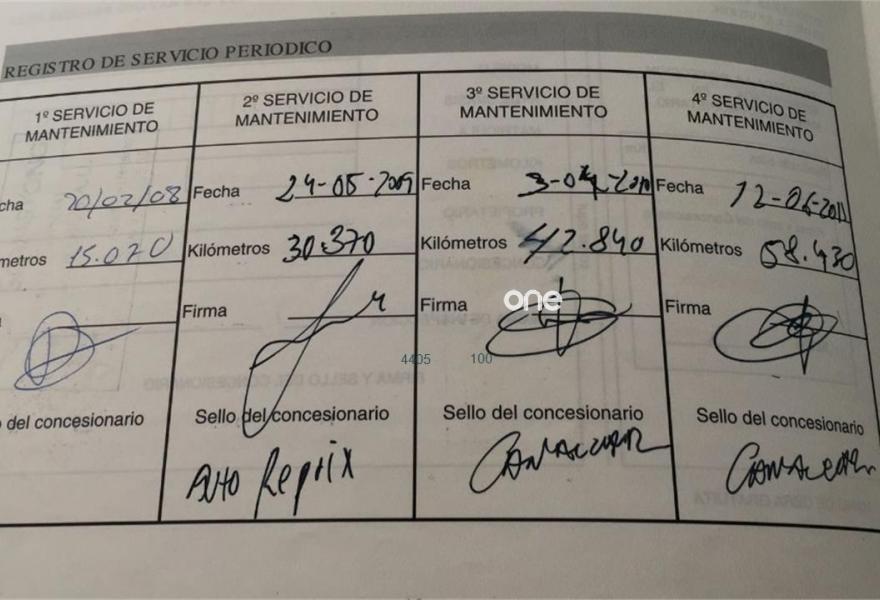 REGISTRO DE SERVICIO PERIODICO
1º SERVICIO DE
MANTENIMIENTO
2º SERVICIO DE
MANTENIMIENTO
3º SERVICIO DE
MANTENIMIENTO
4º SERVICIO DE
MANTENIMIENTO
cha 20/02/08
Fecha 24-05-2009
Fecha 3-04-2010
Fecha 12-06-2011
metros 15.020
Kilómetros 30.370
Kilómetros 42.840
Kilómetros 58.430
Firma
Firma
Firma
one
4405 100
del concesionario
Sello del concesionario
Sello del concesionario
Sello del concesionario
Auto Reprix